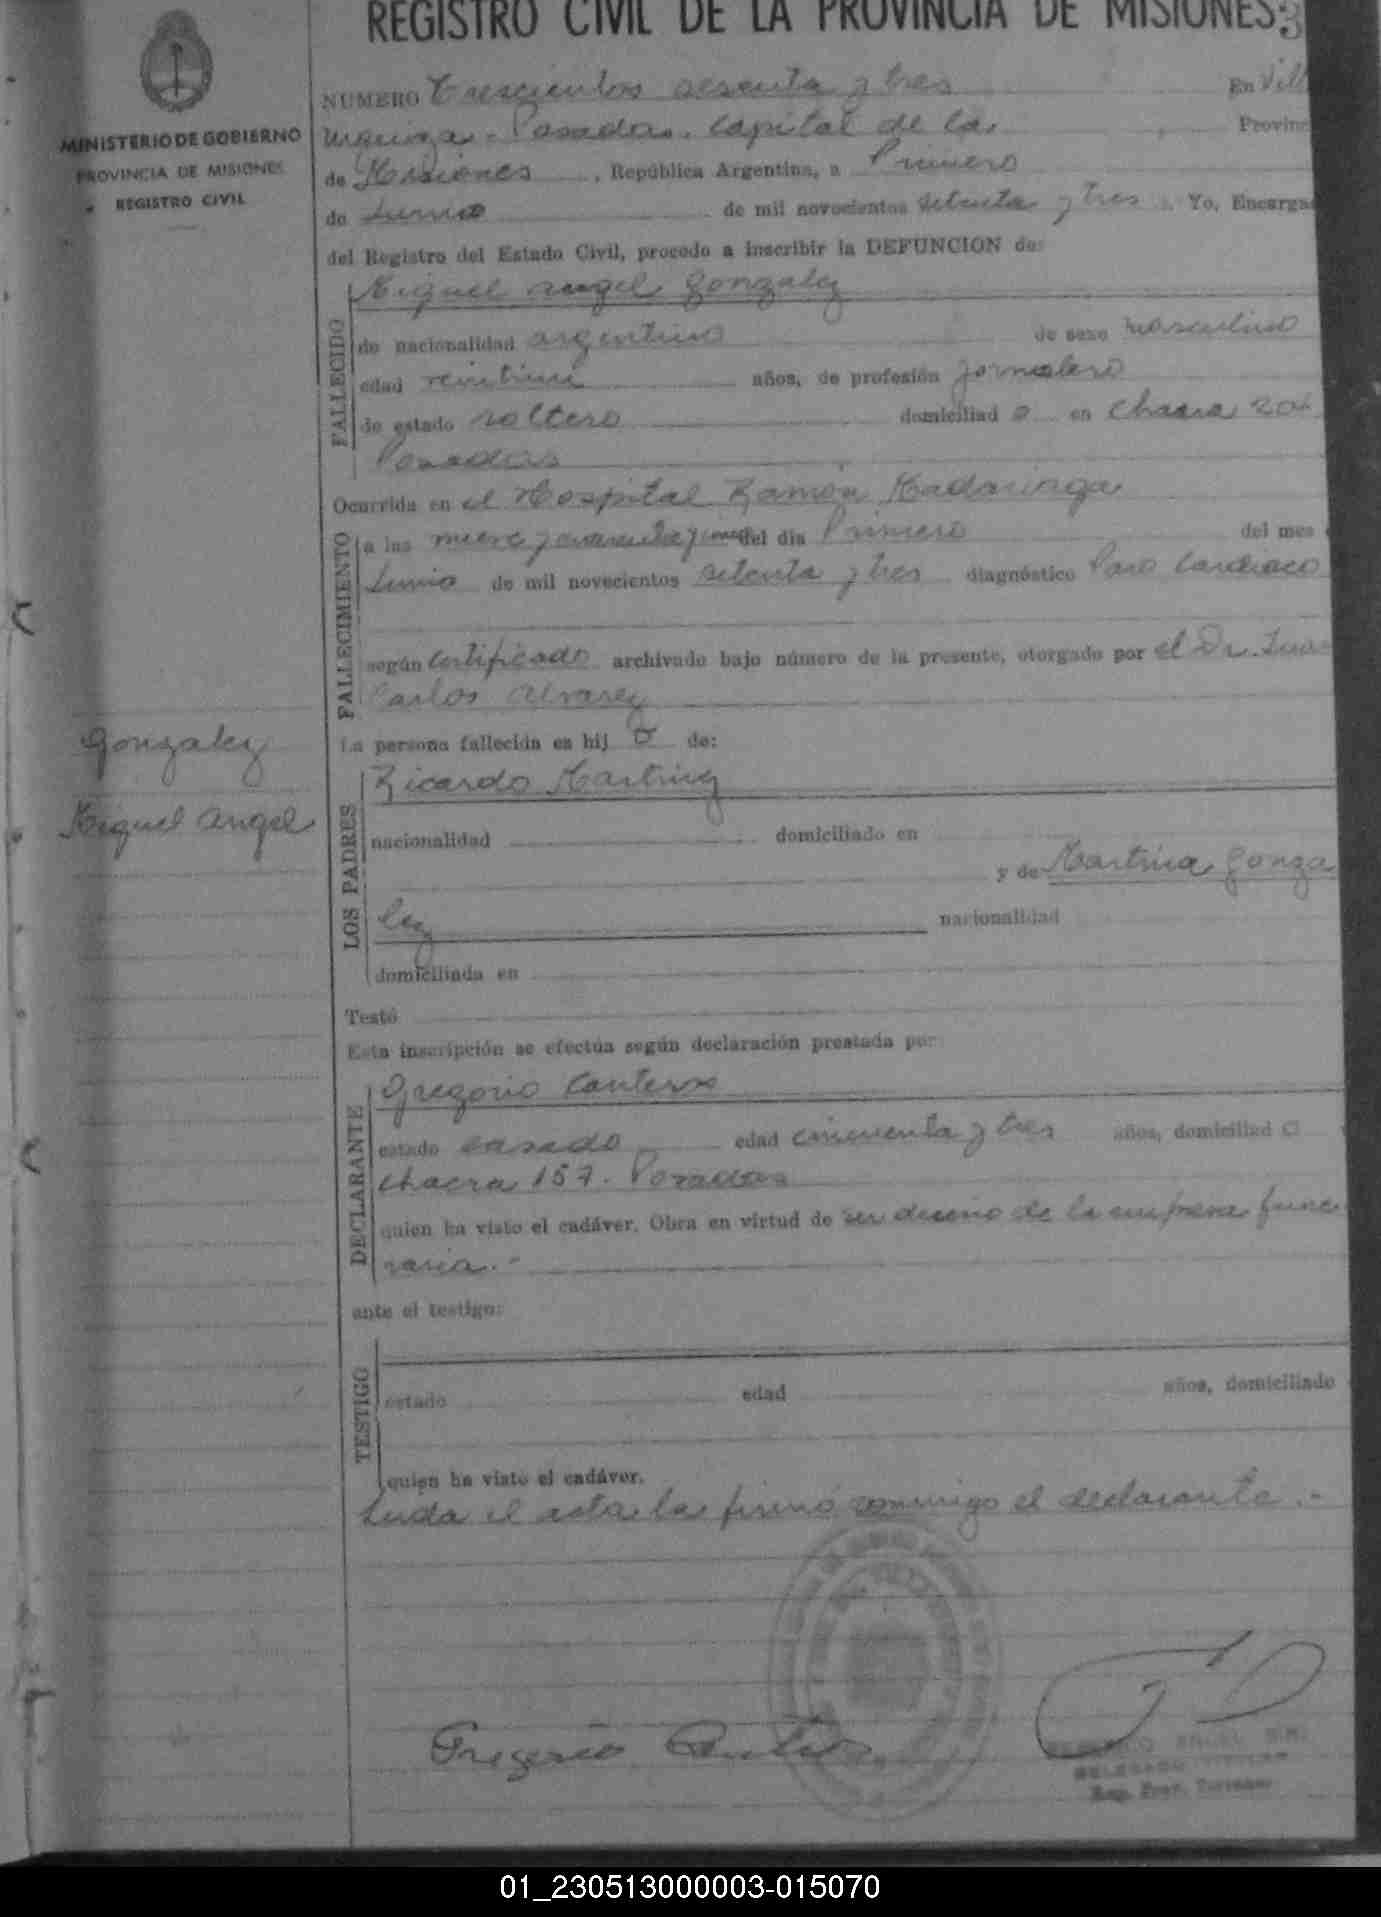 REGISTRO CIVIL DE LA PROVINCIA DE MISIONES
MINISTERIO DE GOBIERNO
PROVINCIA DE MISIONES
REGISTRO CIVIL
NUMERO Trescientos sesenta y tres En Vill
Urquiza - Posadas. Capital de la Provinc
de Misiones, República Argentina, a Primero
de Junio de mil novecientos setenta y tres. Yo, Encarga
del Registro del Estado Civil, procedo a inscribir la DEFUNCION de:
FALLECIDO
Miguel angel Gonzalez
de nacionalidad argentino de sexo masculino
edad años, de profesión jornalero
de estado soltero domiciliad o en chacra
Posadas
Ocurrida en el Hospital Ramón Madariaga
FALLECIMIENTO
a las nueve y cuarenta y del día Primero del mes
Junio de mil novecientos setenta y tres diagnóstico Paro Cardiaco
según certificado archivado bajo número de la presente, otorgado por el Dr. Juan
Carlos Alvarez
Gonzalez
Miguel Angel
La persona fallecida es hij o de:
LOS PADRES
Ricardo Martinez
nacionalidad domiciliado en
y de Martina Gonza
lez nacionalidad
domiciliada en
Testó
Esta inscripción se efectúa según declaración prestada por:
DECLARANTE
Gregorio Canteros
estado casado edad cincuenta y tres años, domiciliad o
chacra 157. Posadas
quien ha visto el cadáver. Obra en virtud de ser dueño de la empresa fune
raria.-
ante el testigo:
TESTIGO
estado edad años, domiciliado
quien ha visto el cadáver.
Leida el acta la firmó conmigo el declarante.-
Gregorio Canteros
01_230513000003-015070